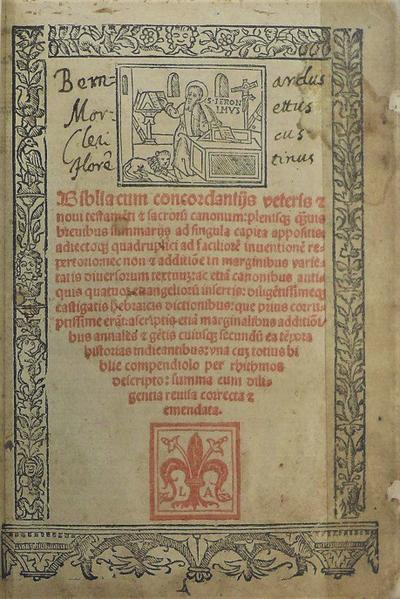 Bern- ardus
Mor- ettus
Cleri cus
Florẽ tinus
S·IERON
IMVS
Biblia cum concordantijs veteris ⁊
noui testamẽti ⁊ sacrorũ canonum: plenisq̃
breuibus summarijs ad singula capita appositis:
adiectoq̃ quadruplici ad faciliorẽ inuentionẽ re-
pertorio: nec non ⁊ additiõe in marginibus varie-
tatis diuersorum textuum: ac etiã canonibus anti-
quis quatuor euangeliorũ insertis: diligẽtissimeq̃
castigatis hebraicis dictionibus: que prius corru-
ptissime erãt: ascriptis etiã marginalibus additiõi-
bus annales ⁊ gẽtis cuiusq̃ secundũ ea tẽpora
historias indicantibus: vna cuz totius bi
blie compendiolo per rhithmos
descripto: summa cum dili-
gentia reuisa correcta ⁊
emendata.
L A
A